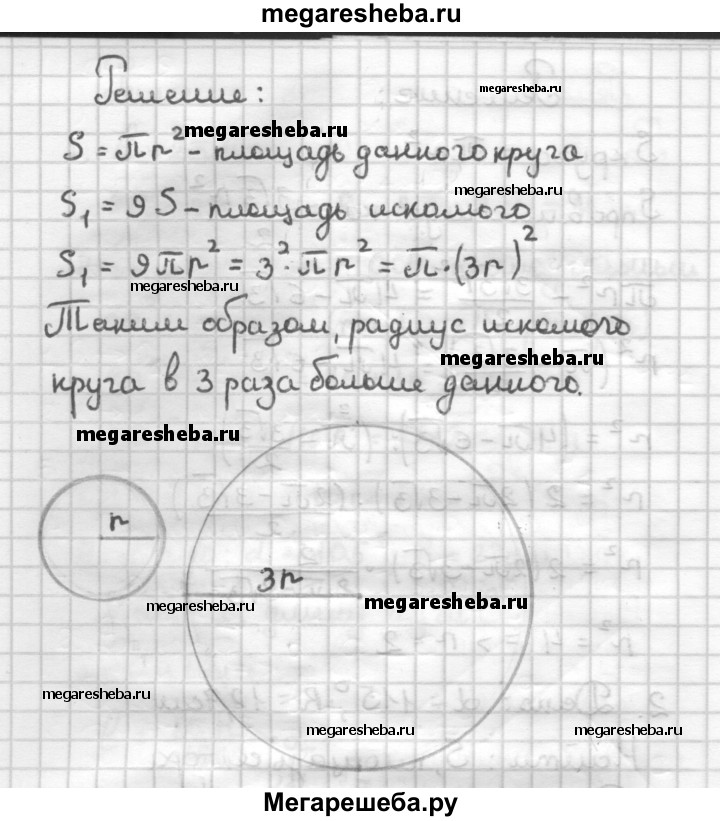 megaresheba.ru
Решение:
megaresheba.ru
S = πr² - площадь данного круга
megaresheba.ru
megaresheba.ru
S₁ = 9S - площадь искомого
S₁ = 9πr² = 3² · πr² = π · (3r)²
megaresheba.ru
Таким образом, радиус искомого
megaresheba.ru
круга в 3 раза больше данного.
megaresheba.ru
r
3r
megaresheba.ru
megaresheba.ru
megaresheba.ru
megaresheba.ru
megaresheba.ru
Мегарешеба.ру